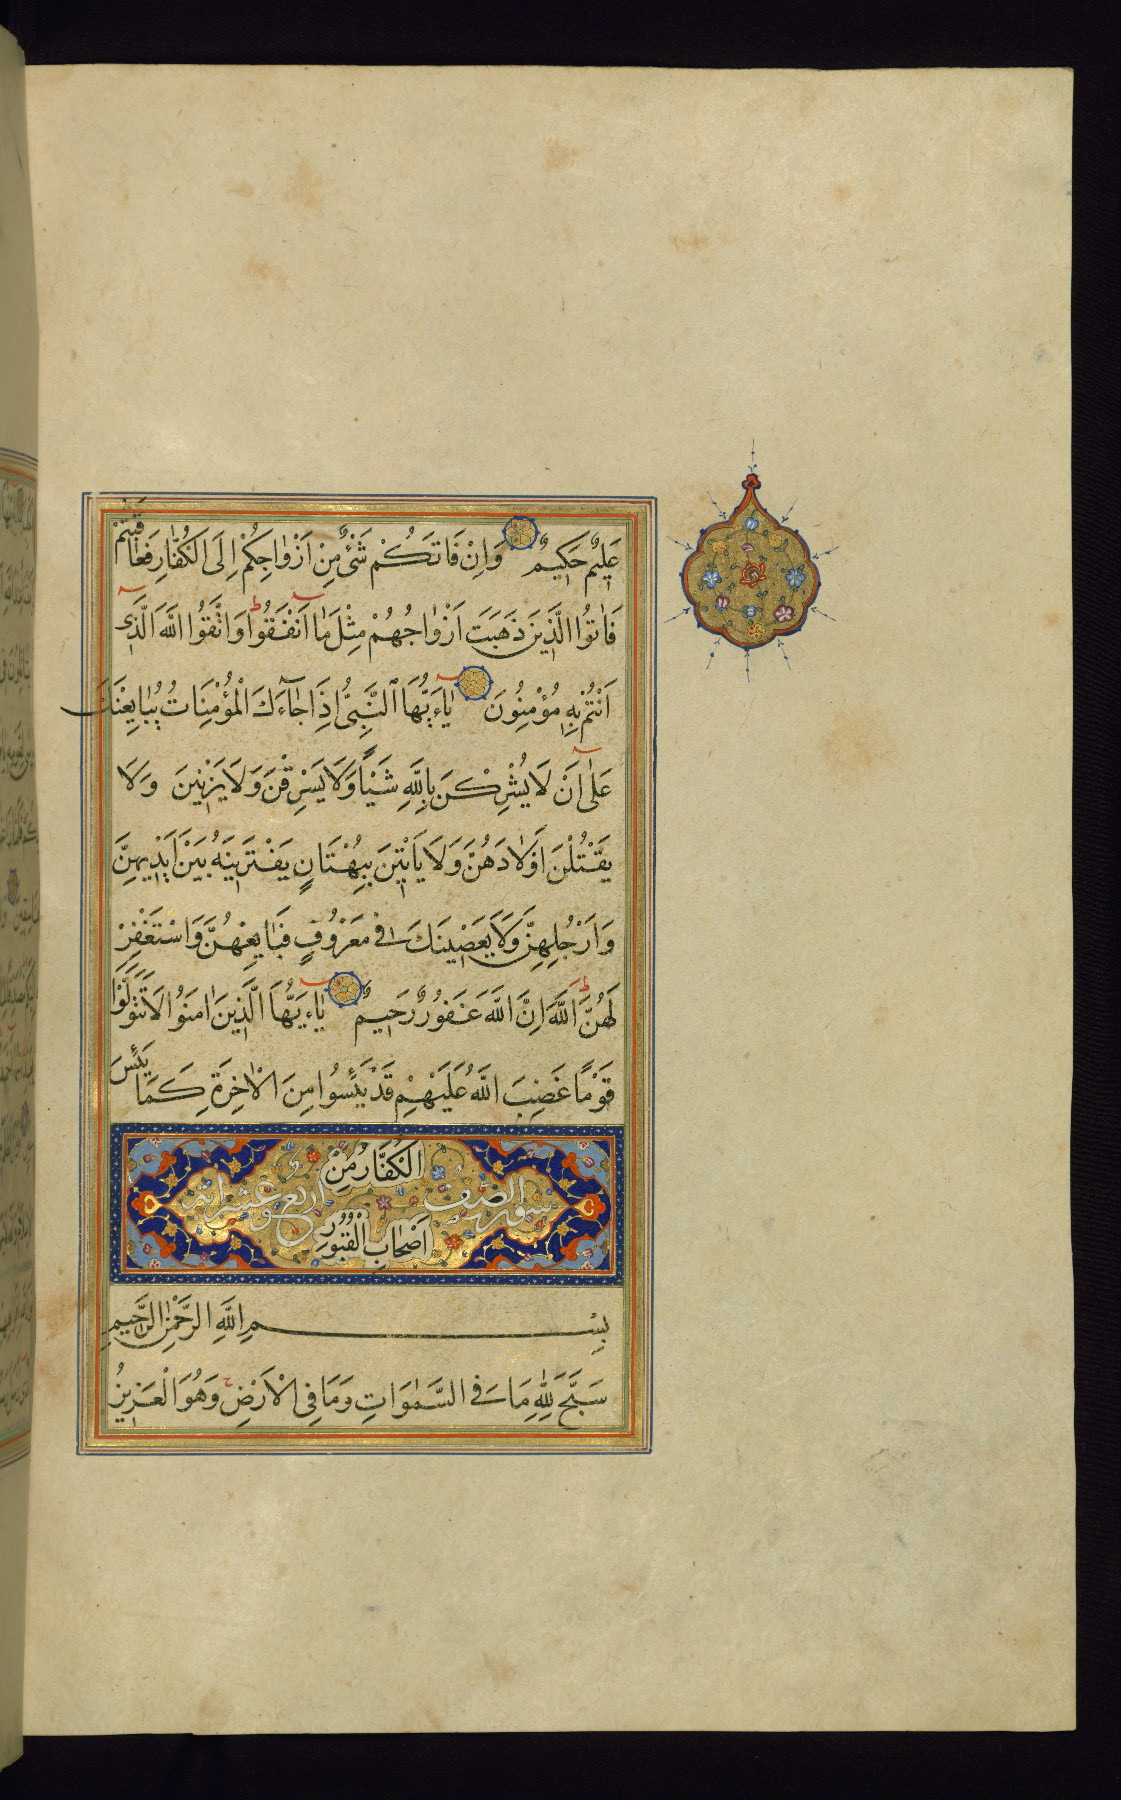 عَلِيمٌ حَكِيمٌ وَاِنْ فَاتَكُمْ شَىْءٌ مِنْ اَزْوَاجِكُمْ اِلَى الْكُفَّارِ فَعَاقَبْتُمْ
فَاٰتُوا الَّذِينَ ذَهَبَتْ اَزْوَاجُهُمْ مِثْلَ مَا اَنْفَقُوا وَاتَّقُوا اللّٰهَ الَّذِى
اَنْتُمْ بِهِ مُؤْمِنُونَ يَاءَيُّهَا النَّبِىُّ اِذَا جَاءَكَ الْمُؤْمِنَاتُ يُبَايِعْنَكَ
عَلٰى اَنْ لَا يُشْرِكْنَ بِاللّٰهِ شَيْئًا وَلَا يَسْرِقْنَ وَلَا يَزْنِينَ وَلَا
يَقْتُلْنَ اَوْلَادَهُنَّ وَلَا يَاْتِينَ بِبُهْتَانٍ يَفْتَرِينَهُ بَيْنَ اَيْدِيهِنَّ
وَاَرْجُلِهِنَّ وَلَا يَعْصِينَكَ فِى مَعْرُوفٍ فَبَايِعْهُنَّ وَاسْتَغْفِرْ
لَهُنَّ اللّٰهَ اِنَّ اللّٰهَ غَفُورٌ رَحِيمٌ يَاءَيُّهَا الَّذِينَ اٰمَنُوا لَا تَتَوَلَّوْا
قَوْمًا غَضِبَ اللّٰهُ عَلَيْهِمْ قَدْ يَئِسُوا مِنَ الْاٰخِرَةِ كَمَا يَئِسَ
الْكُفَّارُ مِنْ
سورة الصف اربع وعشر اية
اَصْحَابِ الْقُبُورِ
بِسْمِ اللّٰهِ الرَّحْمٰنِ الرَّحِيمِ
سَبَّحَ لِلّٰهِ مَا فِى السَّمٰوَاتِ وَمَا فِى الْاَرْضِ وَهُوَ الْعَزِيزُ